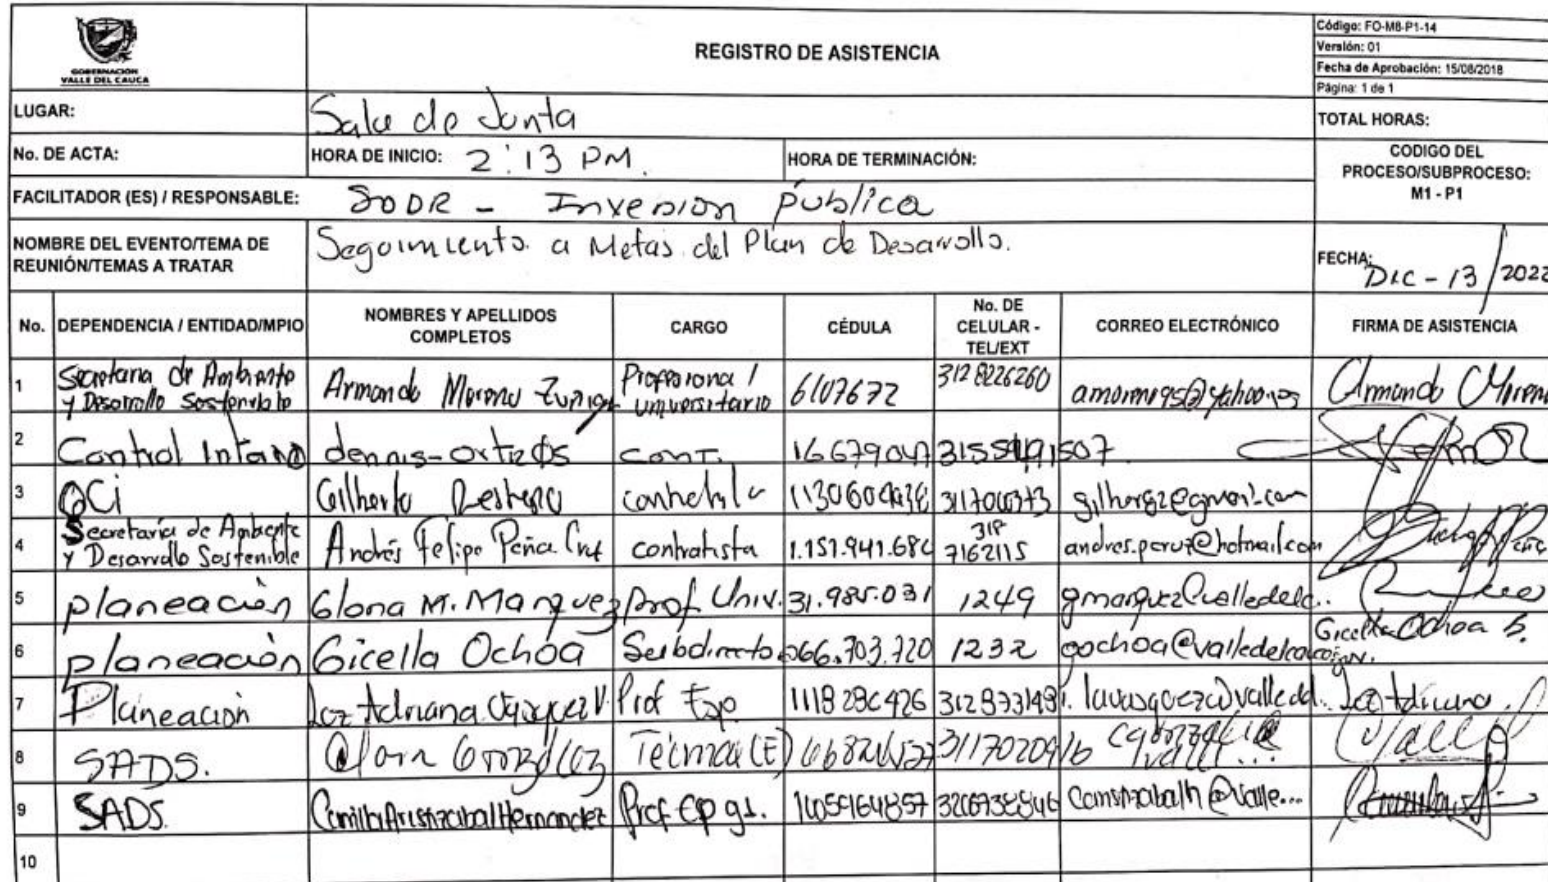 GOBERNACIÓN
VALLE DEL CAUCA
REGISTRO DE ASISTENCIA
Código: FO-M8-P1-14
Versión: 01
Fecha de Aprobación: 15/08/2018
Página: 1 de 1
LUGAR: Sala de Junta
TOTAL HORAS:
No. DE ACTA:
HORA DE INICIO: 2:13 PM.
HORA DE TERMINACIÓN:
CODIGO DEL
PROCESO/SUBPROCESO:
M1 - P1
FACILITADOR (ES) / RESPONSABLE: SODR - Inversion pública
NOMBRE DEL EVENTO/TEMA DE
REUNIÓN/TEMAS A TRATAR
Seguimiento a Metas del Plan de Desarrollo.
FECHA: Dic - 13/2022
No. DEPENDENCIA / ENTIDAD/MPIO NOMBRES Y APELLIDOS COMPLETOS CARGO CÉDULA No. DE CELULAR - TEL/EXT CORREO ELECTRÓNICO FIRMA DE ASISTENCIA
1 Secretaria de Ambiente y Desarrollo Sostenible Armando Moreno Zuñiga Profesional universitario 6107672 312 8226260 Armando Moreno
2 Control Interno dennis-ortiz cont.
3 OCi Gilberto contratista
4 Secretaría de Ambiente y Desarrollo Sostenible Andrés Felipe Peña Cruz contratista 1.151.941.684 318 7162115
5 planeación Gloria M. Marquez Prof. Univ. 31.985.031 1249
6 planeación Gicella Ochoa Subdirectora 66.703.720 1232 Gicella Ochoa
7 Planeación Luz Adriana Vásquez V. Prof Esp 312873148 Luz Adriana
8 SADS. González Técnica (E)
9 SADS. Camilo Aristizabal Hernandez Prof Esp 3206738846
10